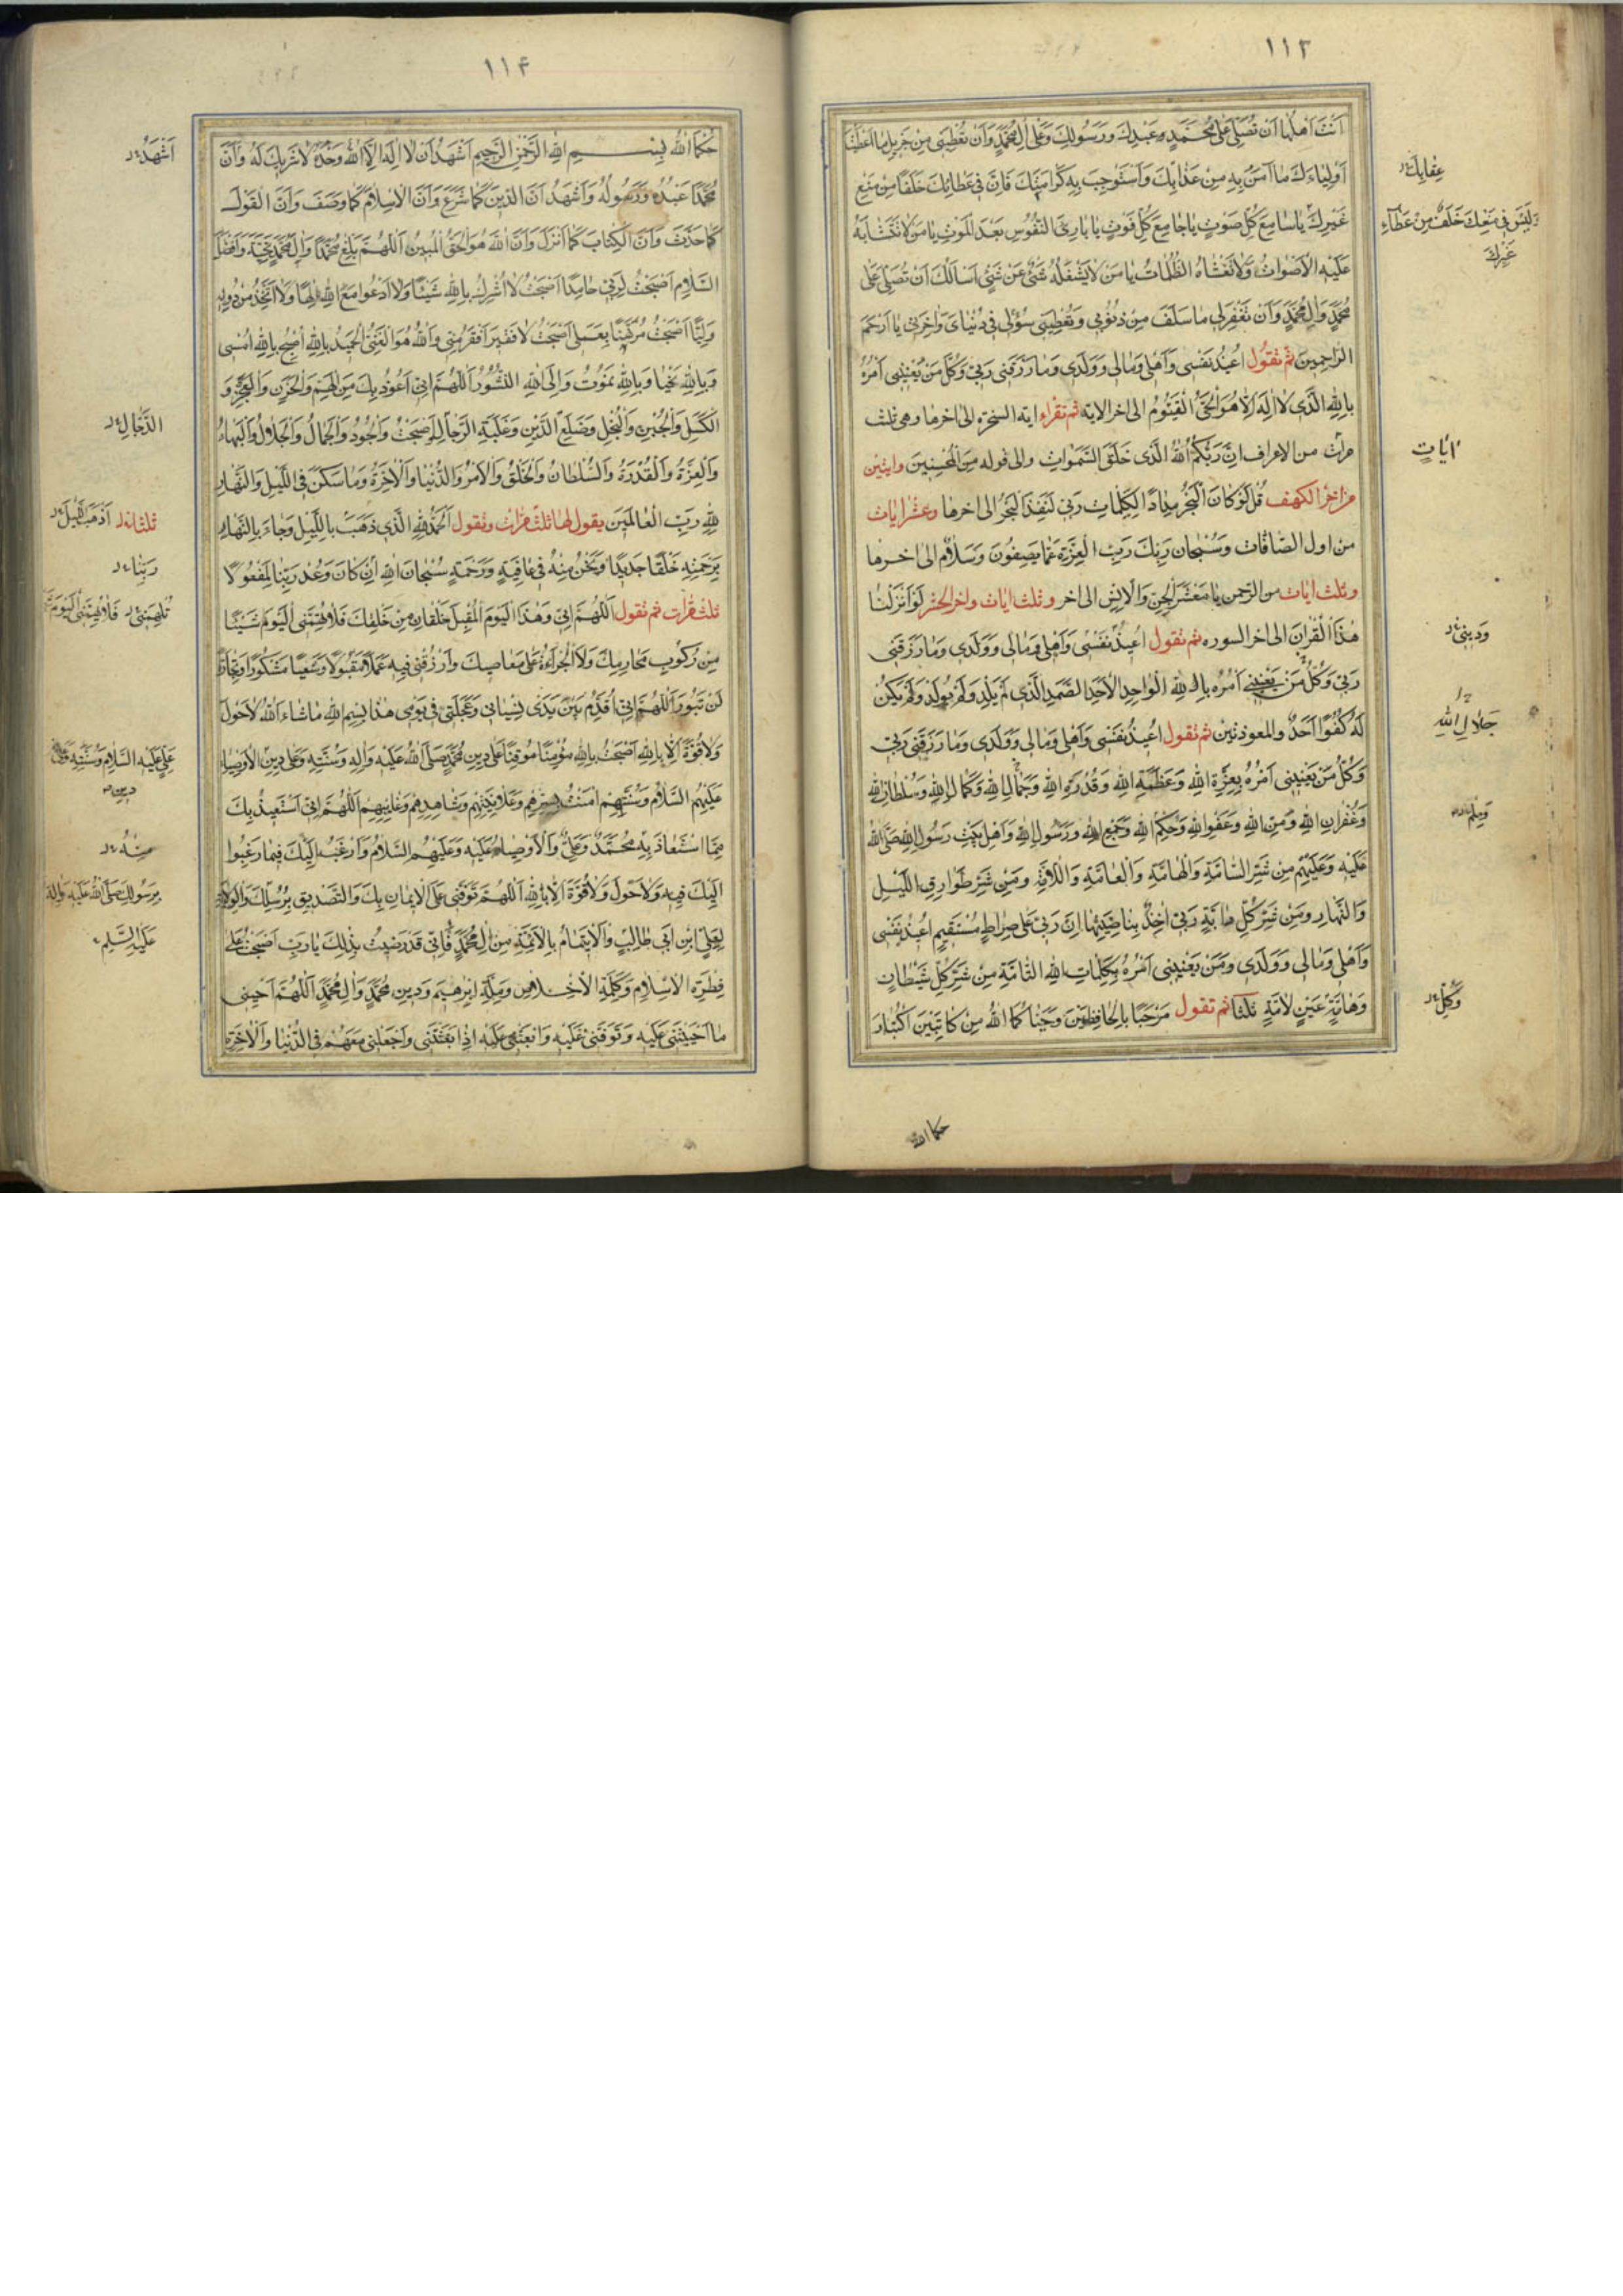 ١١٣
انت اهلها ان تصلی علی محمد عبدك ورسولك وعلی ال محمد وان تعطینی من جزیل ما اعطیت
اولیاءك ما آمن به من عذابك واستوجب به کرامتك فان فی عطائك خلفا من منع
غیرك یا سامع کل صوت یا جامع کل فوت یا باری النفوس بعد الموت یا من لا تتشابه
علیه الاصوات ولا تغشاه الظلمات یا من لا یشغله شیء عن شیء اسالك ان تصلی علی
محمد وال محمد وان تغفر لی ما سلف من ذنوبی وتعطینی سؤلی فی دنیای واخرتی یا ارحم
الراحمین ثم تقول اعیذ نفسی واهلی ومالی وولدی وما رزقنی ربی وکل من یعنینی امره
بالله الذی لا اله الا هو الحی القیوم الی اخر الایه ثم تقراء ایة السخره الی اخرها وهی ثلث
مرات من الاعراف ان ربکم الله الذی خلق السموات والی قوله من المحسنین وایتین
من اخر الکهف قل لو کان البحر مدادا لکلمات ربی لنفد البحر الی اخرها وعشر ایات
من اول الصافات وسبحان ربك رب العزة عما یصفون وسلام الی اخرها
وثلث ایات من الرحمن یا معشر الجن والانس الی اخر وثلث ایات واخر الحشر لو انزلنا
هذا القران الی اخر السوره ثم تقول اعیذ نفسی واهلی ومالی وولدی وما رزقنی
ربی وکل من یعنینی امره بالله الواحد الاحد الصمد الذی لم یلد ولم یولد ولم یکن
له کفوا احد والمعوذتین ثم تقول اعیذ نفسی واهلی ومالی وولدی وما رزقنی ربی
وکل من یعنینی امره بعزة الله وعظمة الله وقدرة الله وجمال الله وکمال الله وسلطان الله
وغفران الله ومن الله وعفو الله وحکم الله وجمع الله ورسول الله واهل بیت رسول الله صلی الله
علیه وعلیهم من شر السامة والهامة والعامة واللامة ومن شر طوارق اللیل
والنهار ومن شر کل دابة ربی اخذ بناصیتها ان ربی علی صراط مستقیم اعیذ نفسی
واهلی ومالی وولدی ومن یعنینی امره بکلمات الله التامة من شر کل شیطان
وهامة عین لامة ثلثا ثم تقول مرحبا بالحافظین وحیاکما الله من کاتبین اکتبا ر
حکما الله
عقابك
ولیس فی منعك خلف من عطاء
غیرك
ایات
ودینی
جلال الله
وکل
١١۴
حکما الله بسم الله الرحمن الرحیم اشهد ان لا اله الا الله وحده لا شریك له وان
محمدا عبده ورسوله واشهد ان الدین کما شرع وان الاسلام کما وصف وان القول
کما حدث وان الکتاب کما انزل وان الله هو الحق المبین اللهم بلغ محمدا وال محمد تحیة وافضل
السلام اصبحت لربی حامدا اصبحت لا اشرك بالله شیئا ولا ادعو مع الله الها ولا اتخذ من دونه
ولیا اصبحت مرتهنا بعملی اصبحت لا فقیر افقر منی والله هو الغنی الحمید بالله اصبح بالله امسی
وبالله نحیا وبالله نموت والی الله النشور اللهم انی اعوذ بك من الهم والحزن والعجز و
الکسل والجبن والبخل وضلع الدین وغلبة الرجال اصبحت والجود والجمال والجلال والبهاء
والعزة والقدرة والسلطان والخلق والامر والدنیا والاخرة وما سکن فی اللیل والنهار
لله رب العالمین یقول لها ثلث مرات وتقول الحمد لله الذی ذهب باللیل وجاء بالنهار
برحمته خلقا جدیدا ونحن منه فی عافیة ورحمة سبحان الله ان کان وعد ربنا لمفعولا
ثلث مرات ثم تقول اللهم انی وهذا الیوم المقبل خلقان من خلقك فلا تهمنی الیوم شیئا
من رکوب محارمك ولا الجراءة علی معاصیك وارزقنی فیه عملا مقبولا وسعیا مشکورا وتجارة
لن تبور اللهم انی اقدم بین یدی نسیانی وعجلتی فی یومی هذا بسم الله ما شاء الله لا حول
ولا قوة الا بالله اصبحت بالله مؤمنا موقنا علی دین محمد صلی الله علیه واله وسنته وعلی دین الاوصیاء
علیهم السلام وسنتهم امنت بسرهم وعلانیتهم وشاهدهم وغائبهم اللهم انی استعیذ بك
مما استعاذ به محمد وعلی والاوصیاء علیه وعلیهم السلام وارغب الیك فیما رغبوا
الیك فیه ولا حول ولا قوة الا بالله اللهم توفنی علی الایمان بك والتصدیق برسلك والولایة
لعلی ابن ابی طالب والایتمام بالائمة من ال محمد فانی قد رضیت بذلك یا رب اصبحت علی
فطرة الاسلام وکلمة الاخلاص وملة ابرهیم ودین محمد وال محمد اللهم احینی
ما احییتنی علیه وتوفنی علیه وابعثنی علیه اذا بعثتنی واجعلنی معهم فی الدنیا والاخرة
اشهد
الدجال
ثلثا اذهب اللیل
ربنا
علی علیه السلام وسنته
منه
برسولك صلی الله علیه واله
علیه السلم